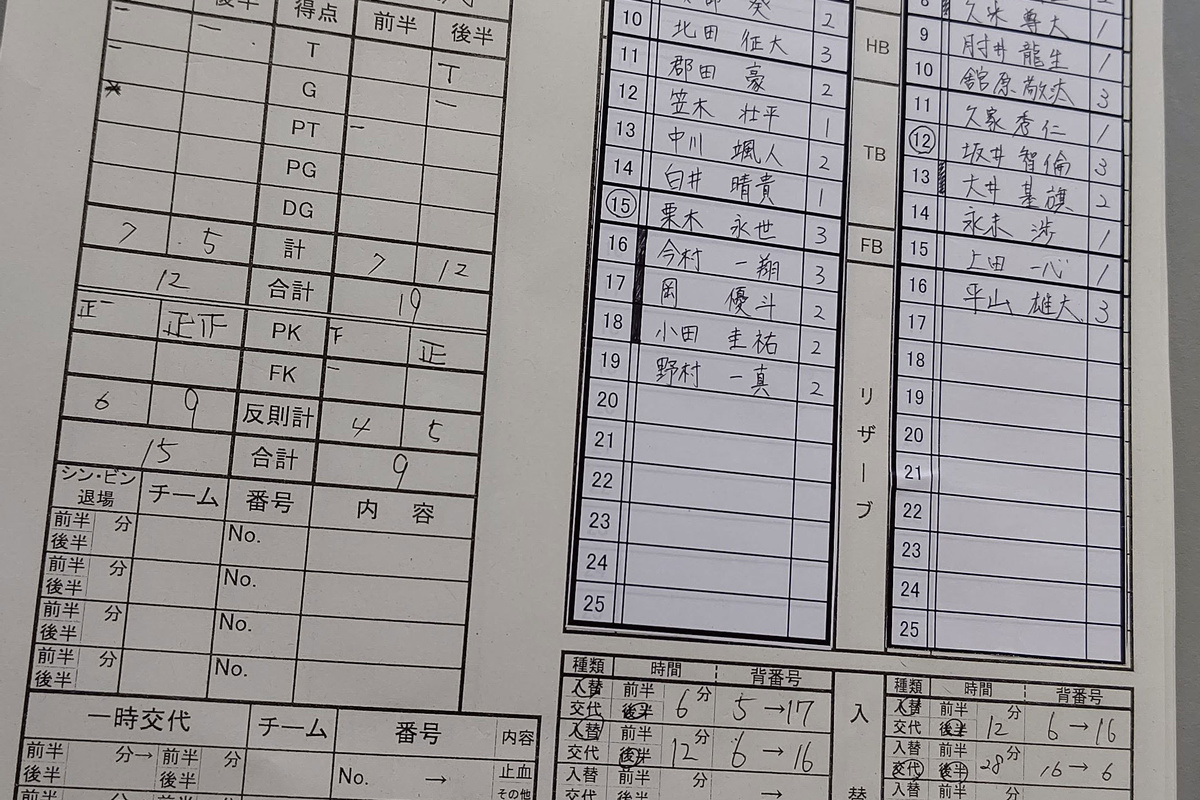 後半 得点 前半 後半
T
T
G
PT
PG
DG
7 5 計 7 12
12 合計 19
正一 正正 PK 正
FK
6 9 反則計 4 5
15 合計 9
シン・ビン
退場 チーム 番号 内容
前半 分
後半 No.
前半 分
後半 No.
前半 分
後半 No.
前半 分
後半 No.
一時交代 チーム 番号 内容
前半 分→ 前半 分
後半 後半 No. → 止血
その他
葵 2
10 北田 征大 3
11 郡田 豪 2
12 笠木 壮平 1
13 中川 颯人 2
14 白井 晴貴 1
15 栗木 永世 3
16 今村 一翔 3
17 岡 優斗 2
18 小田 圭祐 2
19 野村 一真 2
20
21
22
23
24
25
HB
TB
FB
リザーブ
8 久米 尊大 1
9 肘井 龍生 1
10 舘原 3
11 久家 秀仁 1
12 坂井 智倫 3
13 大井 基旗 2
14 永末 渉 1
15 上田 一心 1
16 平山 雄大 3
17
18
19
20
21
22
23
24
25
種類 時間 背番号
入替 前半
交代 後半 6分 5→17
入替 前半
交代 後半 12分 6→16
入替 前半
交代 後半 分 →
入替
種類 時間 背番号
入替 前半
交代 後半 12分 6→16
入替 前半
交代 後半 28分 16→6
入替 前半